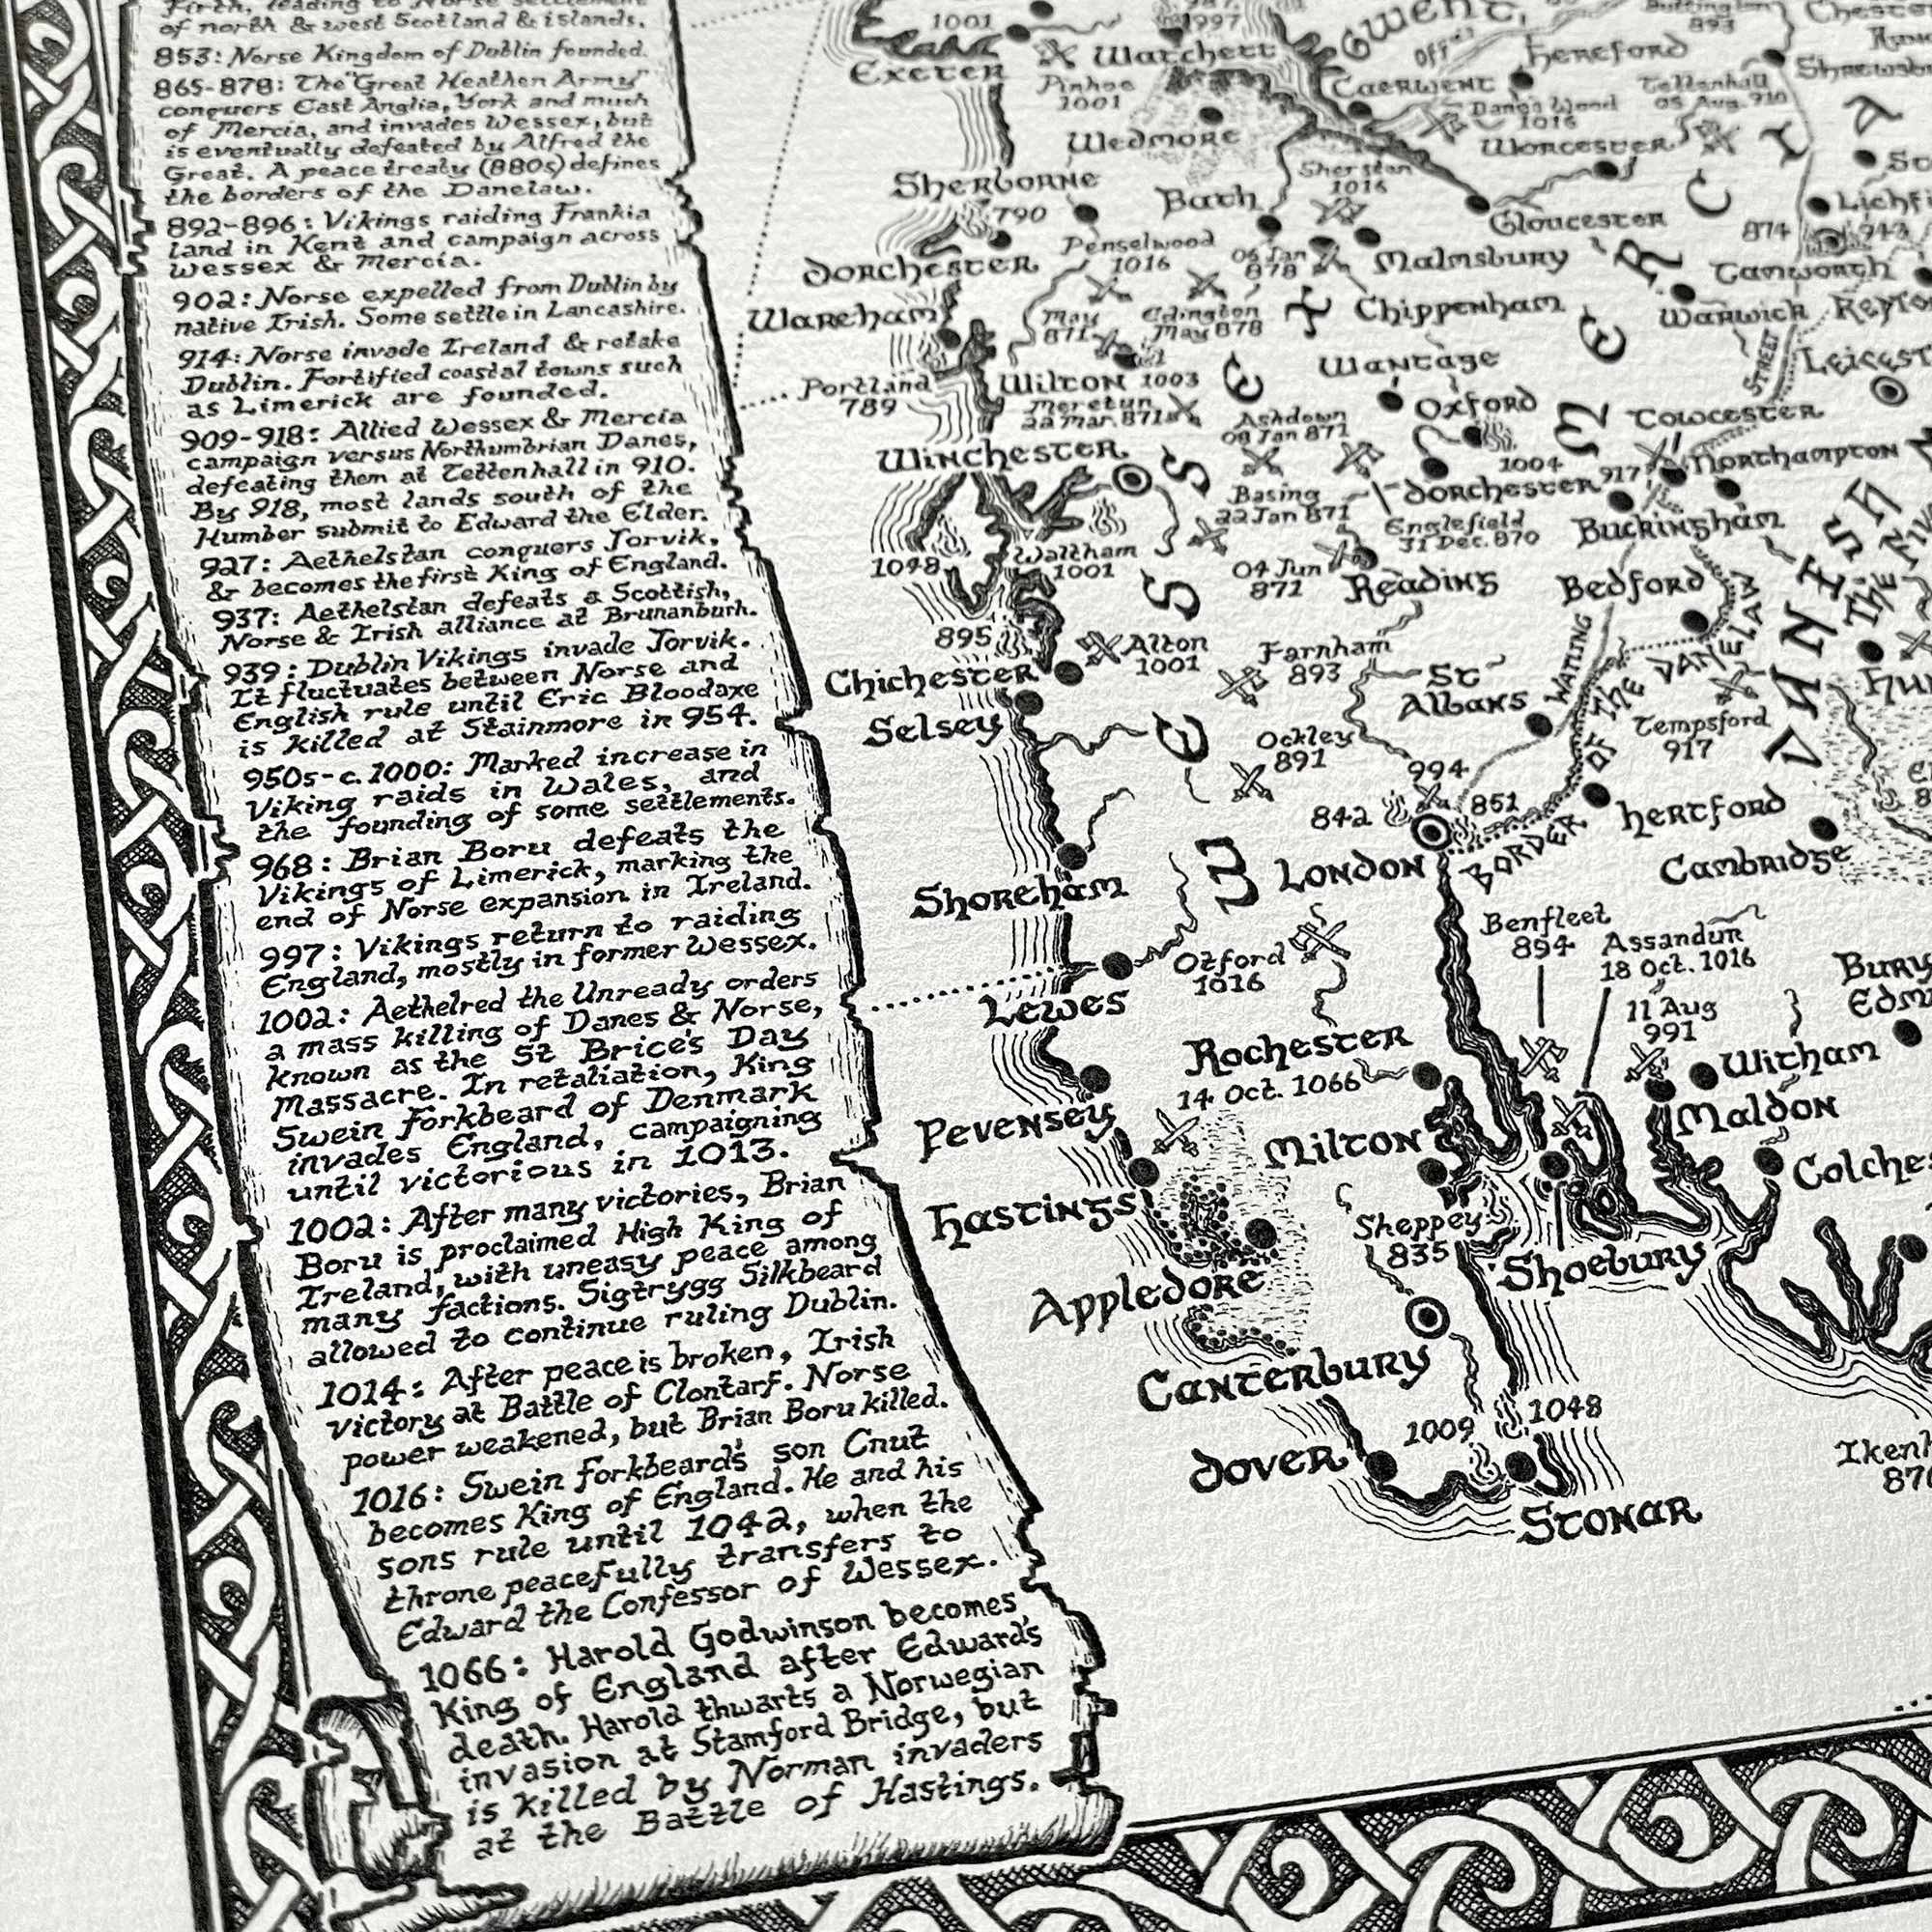 Firth, leading to Norse settlement
of north & west Scotland & islands.
853: Norse Kingdom of Dublin founded.
865-878: The "Great Heathen Army"
conquers East Anglia, York and much
of Mercia, and invades Wessex, but
is eventually defeated by Alfred the
Great. A peace treaty (880s) defines
the borders of the Danelaw.
892-896: Vikings raiding Frankia
land in Kent and campaign across
Wessex & Mercia.
902: Norse expelled from Dublin by
native Irish. Some settle in Lancashire.
914: Norse invade Ireland & retake
Dublin. Fortified coastal towns such
as Limerick are founded.
909-918: Allied Wessex & Mercia
campaign versus Northumbrian Danes,
defeating them at Tettenhall in 910.
By 918, most lands south of the
Humber submit to Edward the Elder.
927: Aethelstan conquers Jorvik,
& becomes the first King of England.
937: Aethelstan defeats a Scottish,
Norse & Irish alliance at Brunanburh.
939: Dublin Vikings invade Jorvik.
It fluctuates between Norse and
English rule until Eric Bloodaxe
is killed at Stainmore in 954.
950s-c.1000: Marked increase in
Viking raids in Wales, and
the founding of some settlements.
968: Brian Boru defeats the
Vikings of Limerick, marking the
end of Norse expansion in Ireland.
997: Vikings return to raiding
England, mostly in former Wessex.
1002: Aethelred the Unready orders
a mass killing of Danes & Norse,
known as the St Brice's Day
Massacre. In retaliation, King
Swein Forkbeard of Denmark
invades England, campaigning
until victorious in 1013.
1002: After many victories, Brian
Boru is proclaimed High King of
Ireland, with uneasy peace among
many factions. Sigtrygg Silkbeard
allowed to continue ruling Dublin.
1014: After peace is broken, Irish
victory at Battle of Clontarf. Norse
power weakened, but Brian Boru killed.
1016: Swein Forkbeard's son Cnut
becomes King of England. He and his
sons rule until 1042, when the
throne peacefully transfers to
Edward the Confessor of Wessex.
1066: Harold Godwinson becomes
King of England after Edward's
death. Harold thwarts a Norwegian
invasion at Stamford Bridge, but
is killed by Norman invaders
at the Battle of Hastings.
1001
Exeter
Pinhoe
1001
997
Watchett
GWENT,
Offa's
893
Hereford
Caerwent
Danga Wood
1016
Tettenhall
05 Aug. 910
Wedmore
Worcester
Sherborne
790
Bath
Sherston
1016
Gloucester
Lichf
874
943
Dorchester
Penselwood
1016
06 Jan
878
Malmsbury
Tamworth
Wareham
May
871
Edington
May 878
Chippenham
Warwick
Portland
789
Wilton 1003
Meretun
22 Mar. 871
Wantage
STREET
Leicest
Ashdown
08 Jan 871
Oxford
1004
Towcester
917
Northampton
Winchester
Basing
22 Jan 871
Dorchester
Englefield
31 Dec. 870
Buckingham
1048
Waltham
1001
04 Jun
871
Reading
Bedford
895
Alton
1001
Farnham
893
Chichester
Selsey
St
Albans
WATLING
Tempsford
917
Ockley
891
994
842
851
London
BORDER OF THE DANELAW
Hertford
Cambridge
WESSEX
MERCIA
DANISH
Shoreham
Lewes
Otford
1016
Benfleet
894
Assandun
18 Oct. 1016
11 Aug
991
Bury
Edm
Rochester
14 Oct. 1066
Witham
Maldon
Pevensey
Milton
Colches
Hastings
Sheppey
835
Shoebury
Appledore
Canterbury
Dover
1009
1048
Stonar
Ikenh
870